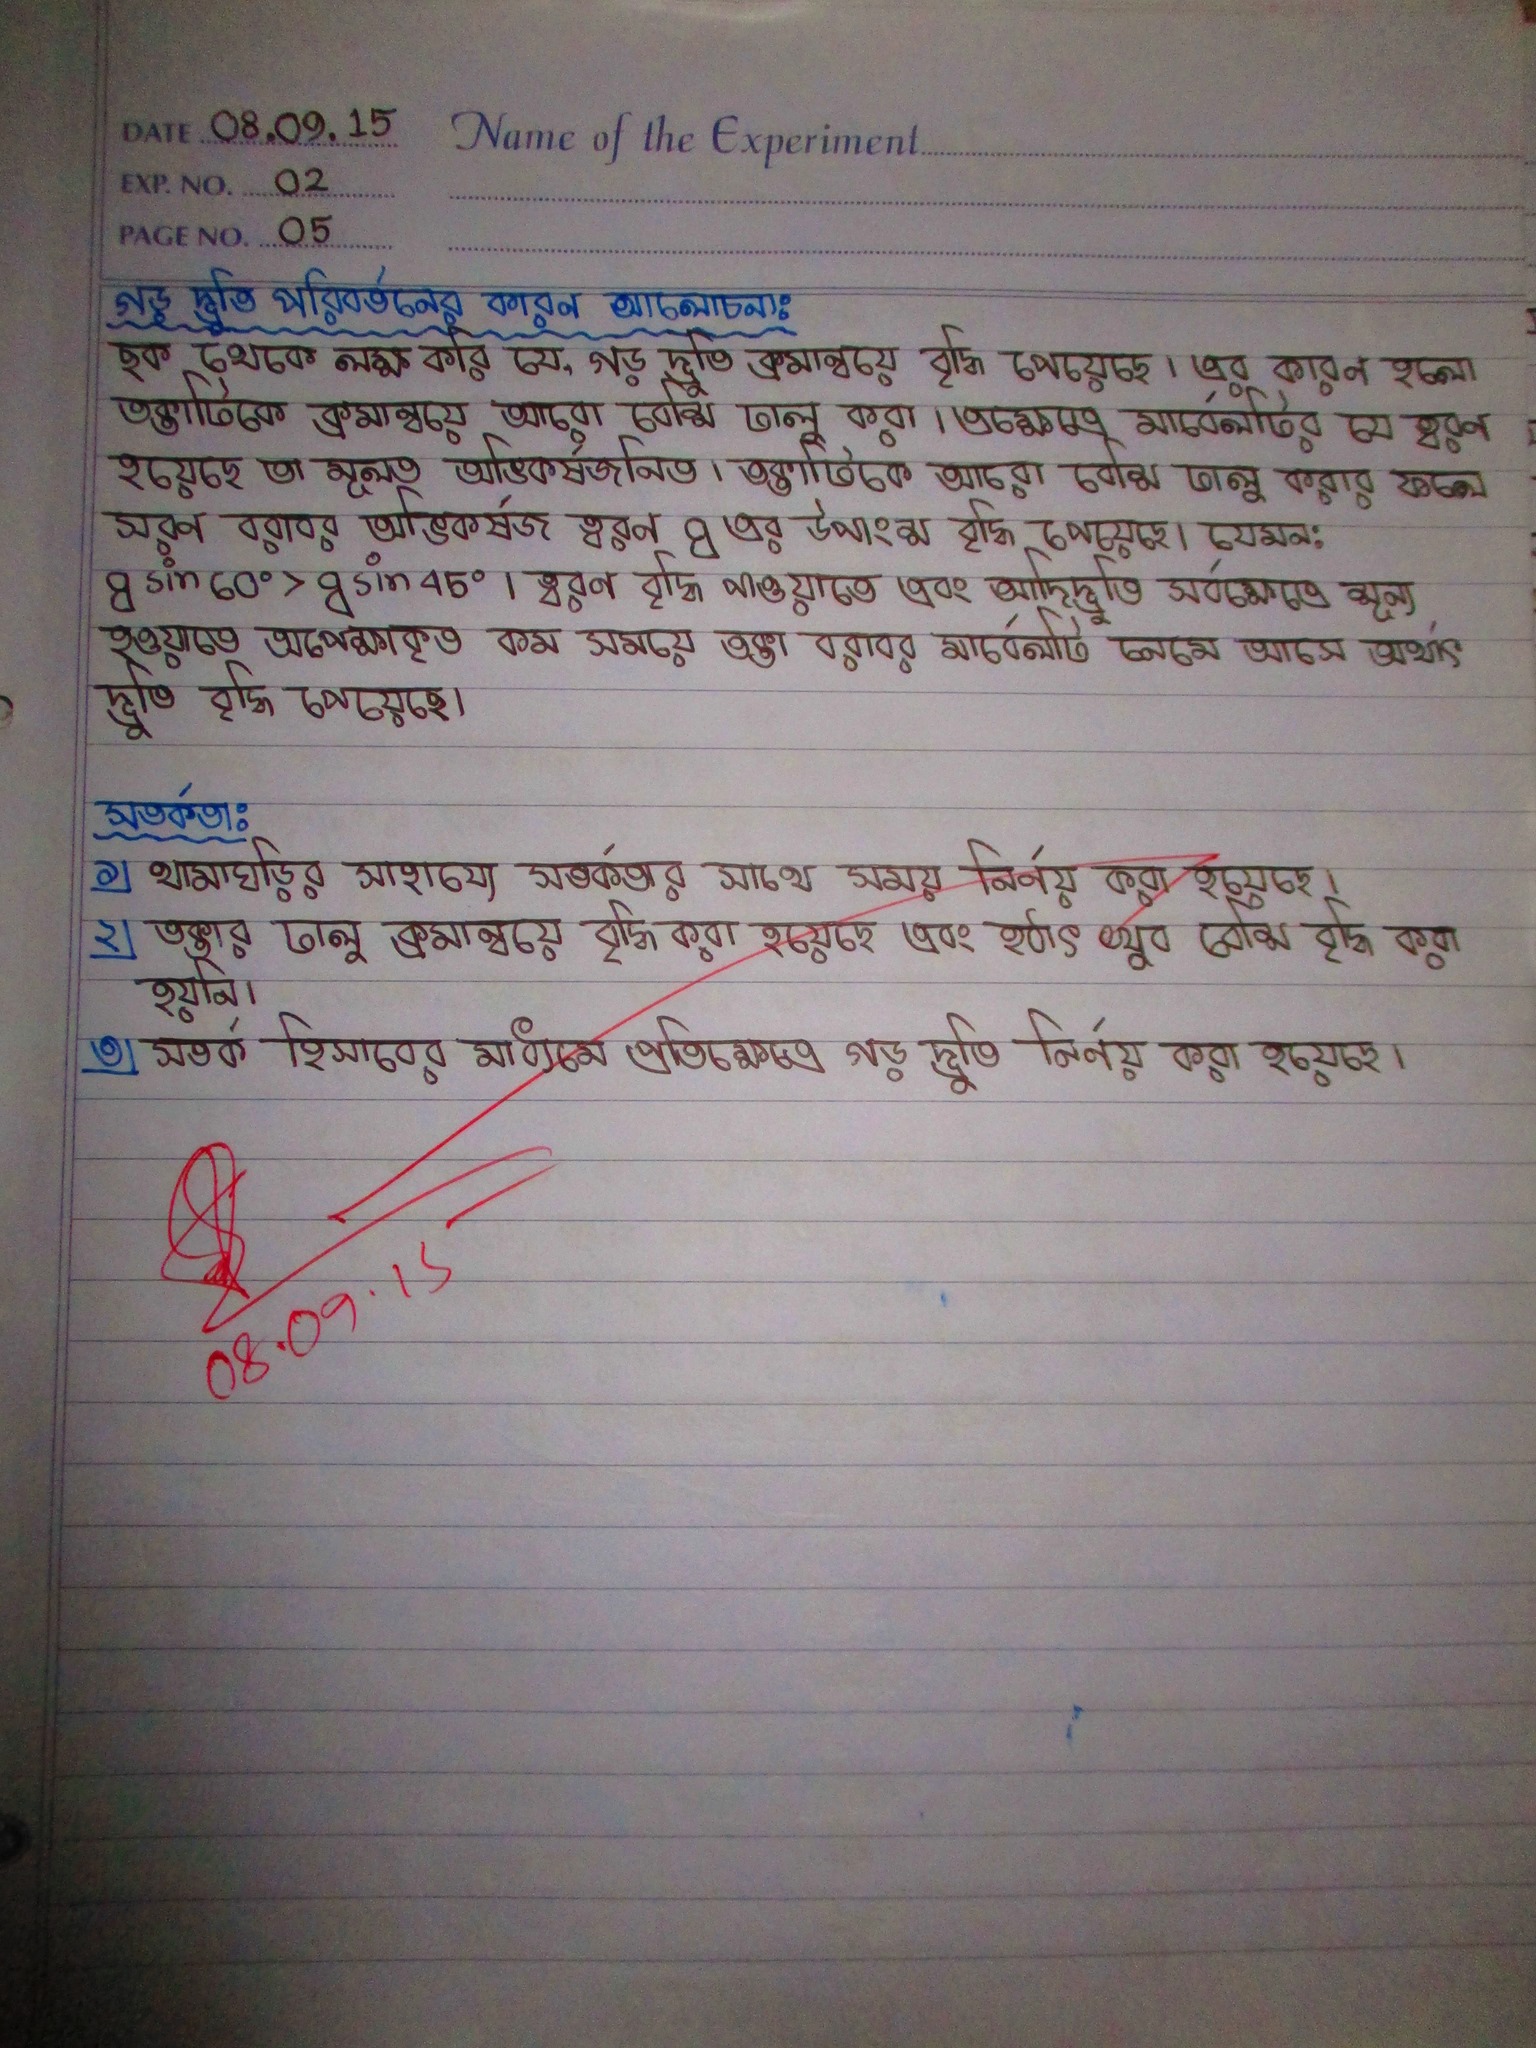 DATE 08.09.15 Name of the Experiment
EXP. NO. 02
PAGE NO. 05
গড় দ্রুতি পরিবর্তনের কারন আলোচনাঃ
ছক থেকে লক্ষ করি যে, গড় দ্রুতি ক্রমান্বয়ে বৃদ্ধি পেয়েছে। এর কারন হলো
তক্তাটিকে ক্রমান্বয়ে আরো বেশি ঢালু করা। এক্ষেত্রে মার্বেলটির যে ত্বরন
হয়েছে তা মূলত অভিকর্ষজনিত। তক্তাটিকে আরো বেশি ঢালু করার ফলে
সরন বরাবর অভিকর্ষজ ত্বরন g এর উপাংশ বৃদ্ধি পেয়েছে। যেমন:
g sin 60° > g sin 45°। ত্বরন বৃদ্ধি পাওয়াতে এবং আদিদ্রুতি সর্বক্ষেত্রে শূন্য
হওয়াতে অপেক্ষাকৃত কম সময়ে তক্তা বরাবর মার্বেলটি নেমে আসে অর্থাৎ
দ্রুতি বৃদ্ধি পেয়েছে।
সতর্কতাঃ
১) থামাঘড়ির সাহায্যে সতর্কতার সাথে সময় নির্নয় করা হয়েছে।
২) তক্তার ঢালু ক্রমান্বয়ে বৃদ্ধি করা হয়েছে এবং হঠাৎ খুব বেশি বৃদ্ধি করা
হয়নি।
৩) সতর্ক হিসাবের মাধ্যমে প্রতিক্ষেত্রে গড় দ্রুতি নির্নয় করা হয়েছে।
08.09.15